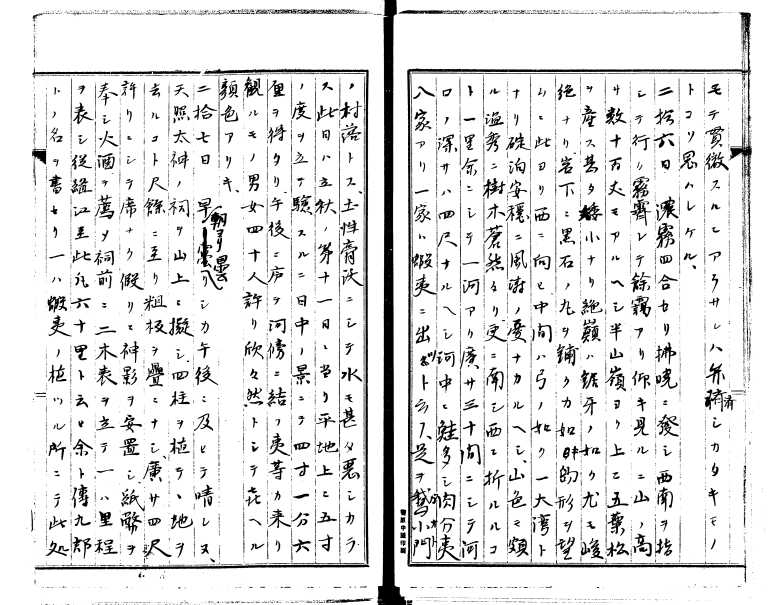 モテ貫徹スルニアラサレハ弁済シカタキモノ
トコソ思ハレケル、
二拾六日 濃霧四合セリ拂暁ニ發シ西南ヲ指
シテ行ク霧霽レテ餘靄アリ仰キ見ルニ山ノ高
サ数十百丈モアルヘシ半山嶺ヨリ上ニ五葉松
ヲ産ス甚タ矮小ナリ絶巓ハ鋸牙ノ如ク尤モ峻
絶ナリ岩下ニ黒石ノ丸ヲ鋪クカ如 形ヲ望
ムニ此ヨリ西ニ向ヒ中間ハ弓ノ如ク一大湾ト
ナリ碇泊安穏ニ風濤ノ憂ナカルヘシ、山色モ頗
ル温秀ニ樹木蒼然タリ更ニ南シ西ニ折ルルコ
ト一里余ニシテ一河アリ廣サ三十間ニシテ河
口ノ深サハ四尺ナルヘシ河中ニ鮭多シ内分夷
八家アリ一家ハ蝦夷ニ出ツト云フ、是ヲ 小門
ノ村落トス、土性膏沃ニシテ水モ甚タ悪シカラ
ス此日ハ立秋ノ第十一日ニ當リ平地上ニ五寸
ノ度ヲ立テ驗スルニ日中ノ景ニテ四寸一分六
厘ヲ得タリ午後ニ庐ヲ河傍ニ結フ夷等カ来リ
観ルモノ男女四十人許リ欣々然トシテ喜ヘル
顔色アリキ
二拾七日 朝ヨリ曇リシカ午後ニ及ヒテ晴レヌ、
天照太神ノ祠ヲ山上ニ擬シ、四柱ヲ植テ、地ヲ
去ルコト尺餘ニ至リ粗板ヲ疊ニナシ、廣サ四尺
許リニシテ席ナク假リニ神影ヲ安置シ紙幣ヲ
奉シ火酒ヲ薦メ祠前ニ二木表ヲ立テ一ハ里程
ヲ表シ従 江至此凡六十里ト云ヒ余ト傳九郎
トノ名ヲ書セリ一ハ蝦夷ノ植ツル所ニテ此処